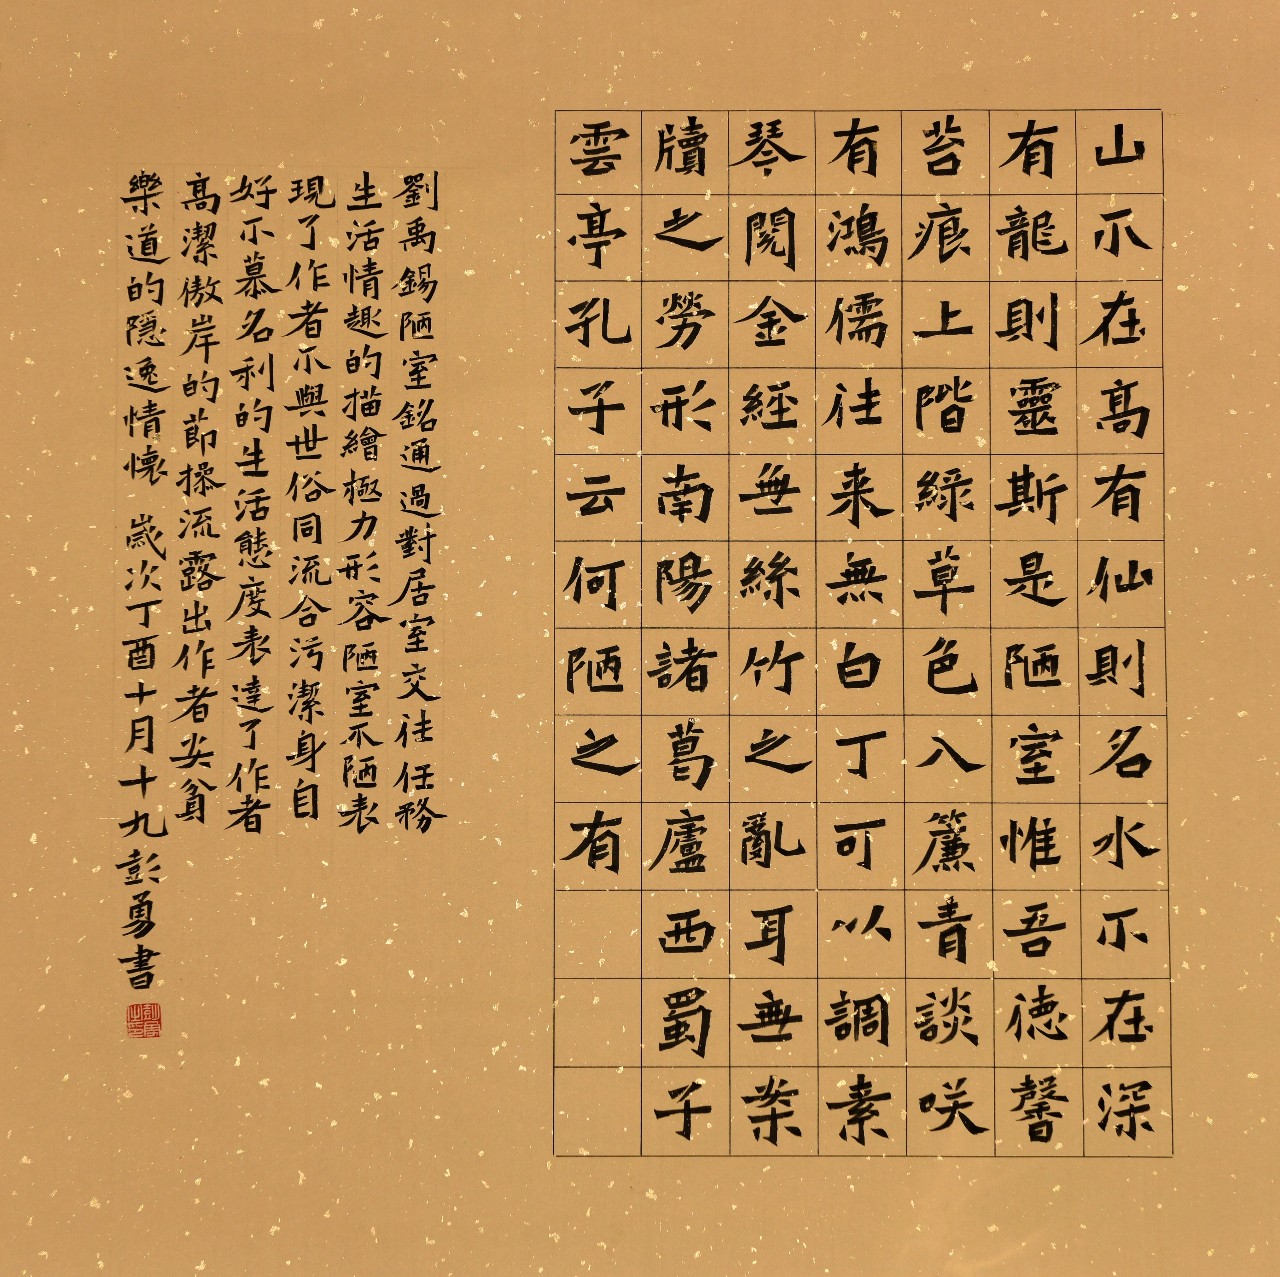 山不在高有仙則名水不在深
有龍則靈斯是陋室惟吾德馨
苔痕上階綠草色入簾青談咲
有鴻儒往来無白丁可以調素
琴閱金經無絲竹之亂耳無案
牘之勞形南陽諸葛廬西蜀子
雲亭孔子云何陋之有
劉禹錫陋室銘通過對居室交往任務
生活情趣的描繪極力形容陋室不陋表
現了作者不與世俗同流合污潔身自
好不慕名利的生活態度表達了作者
高潔傲岸的節操流露出作者安貧
樂道的隱逸情懷 歲次丁酉十月十九彭勇書